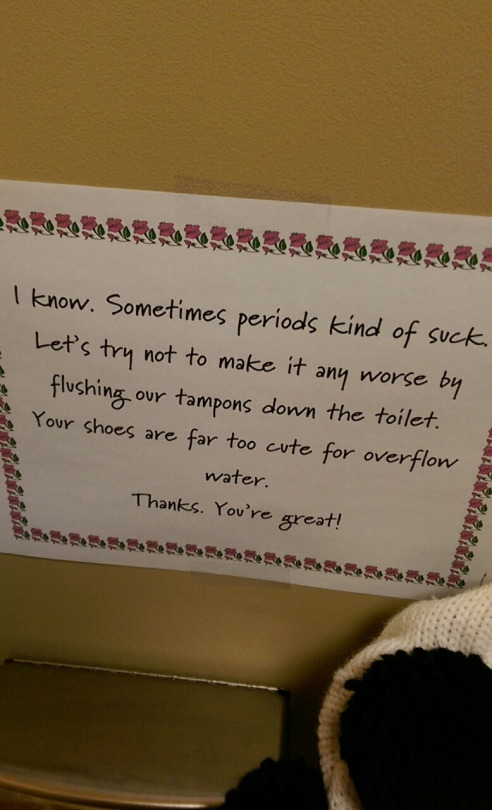 I know. Sometimes periods kind of suck.
Let's try not to make it any worse by
flushing our tampons down the toilet.
Your shoes are far too cute for overflow
water.
Thanks. You're great!